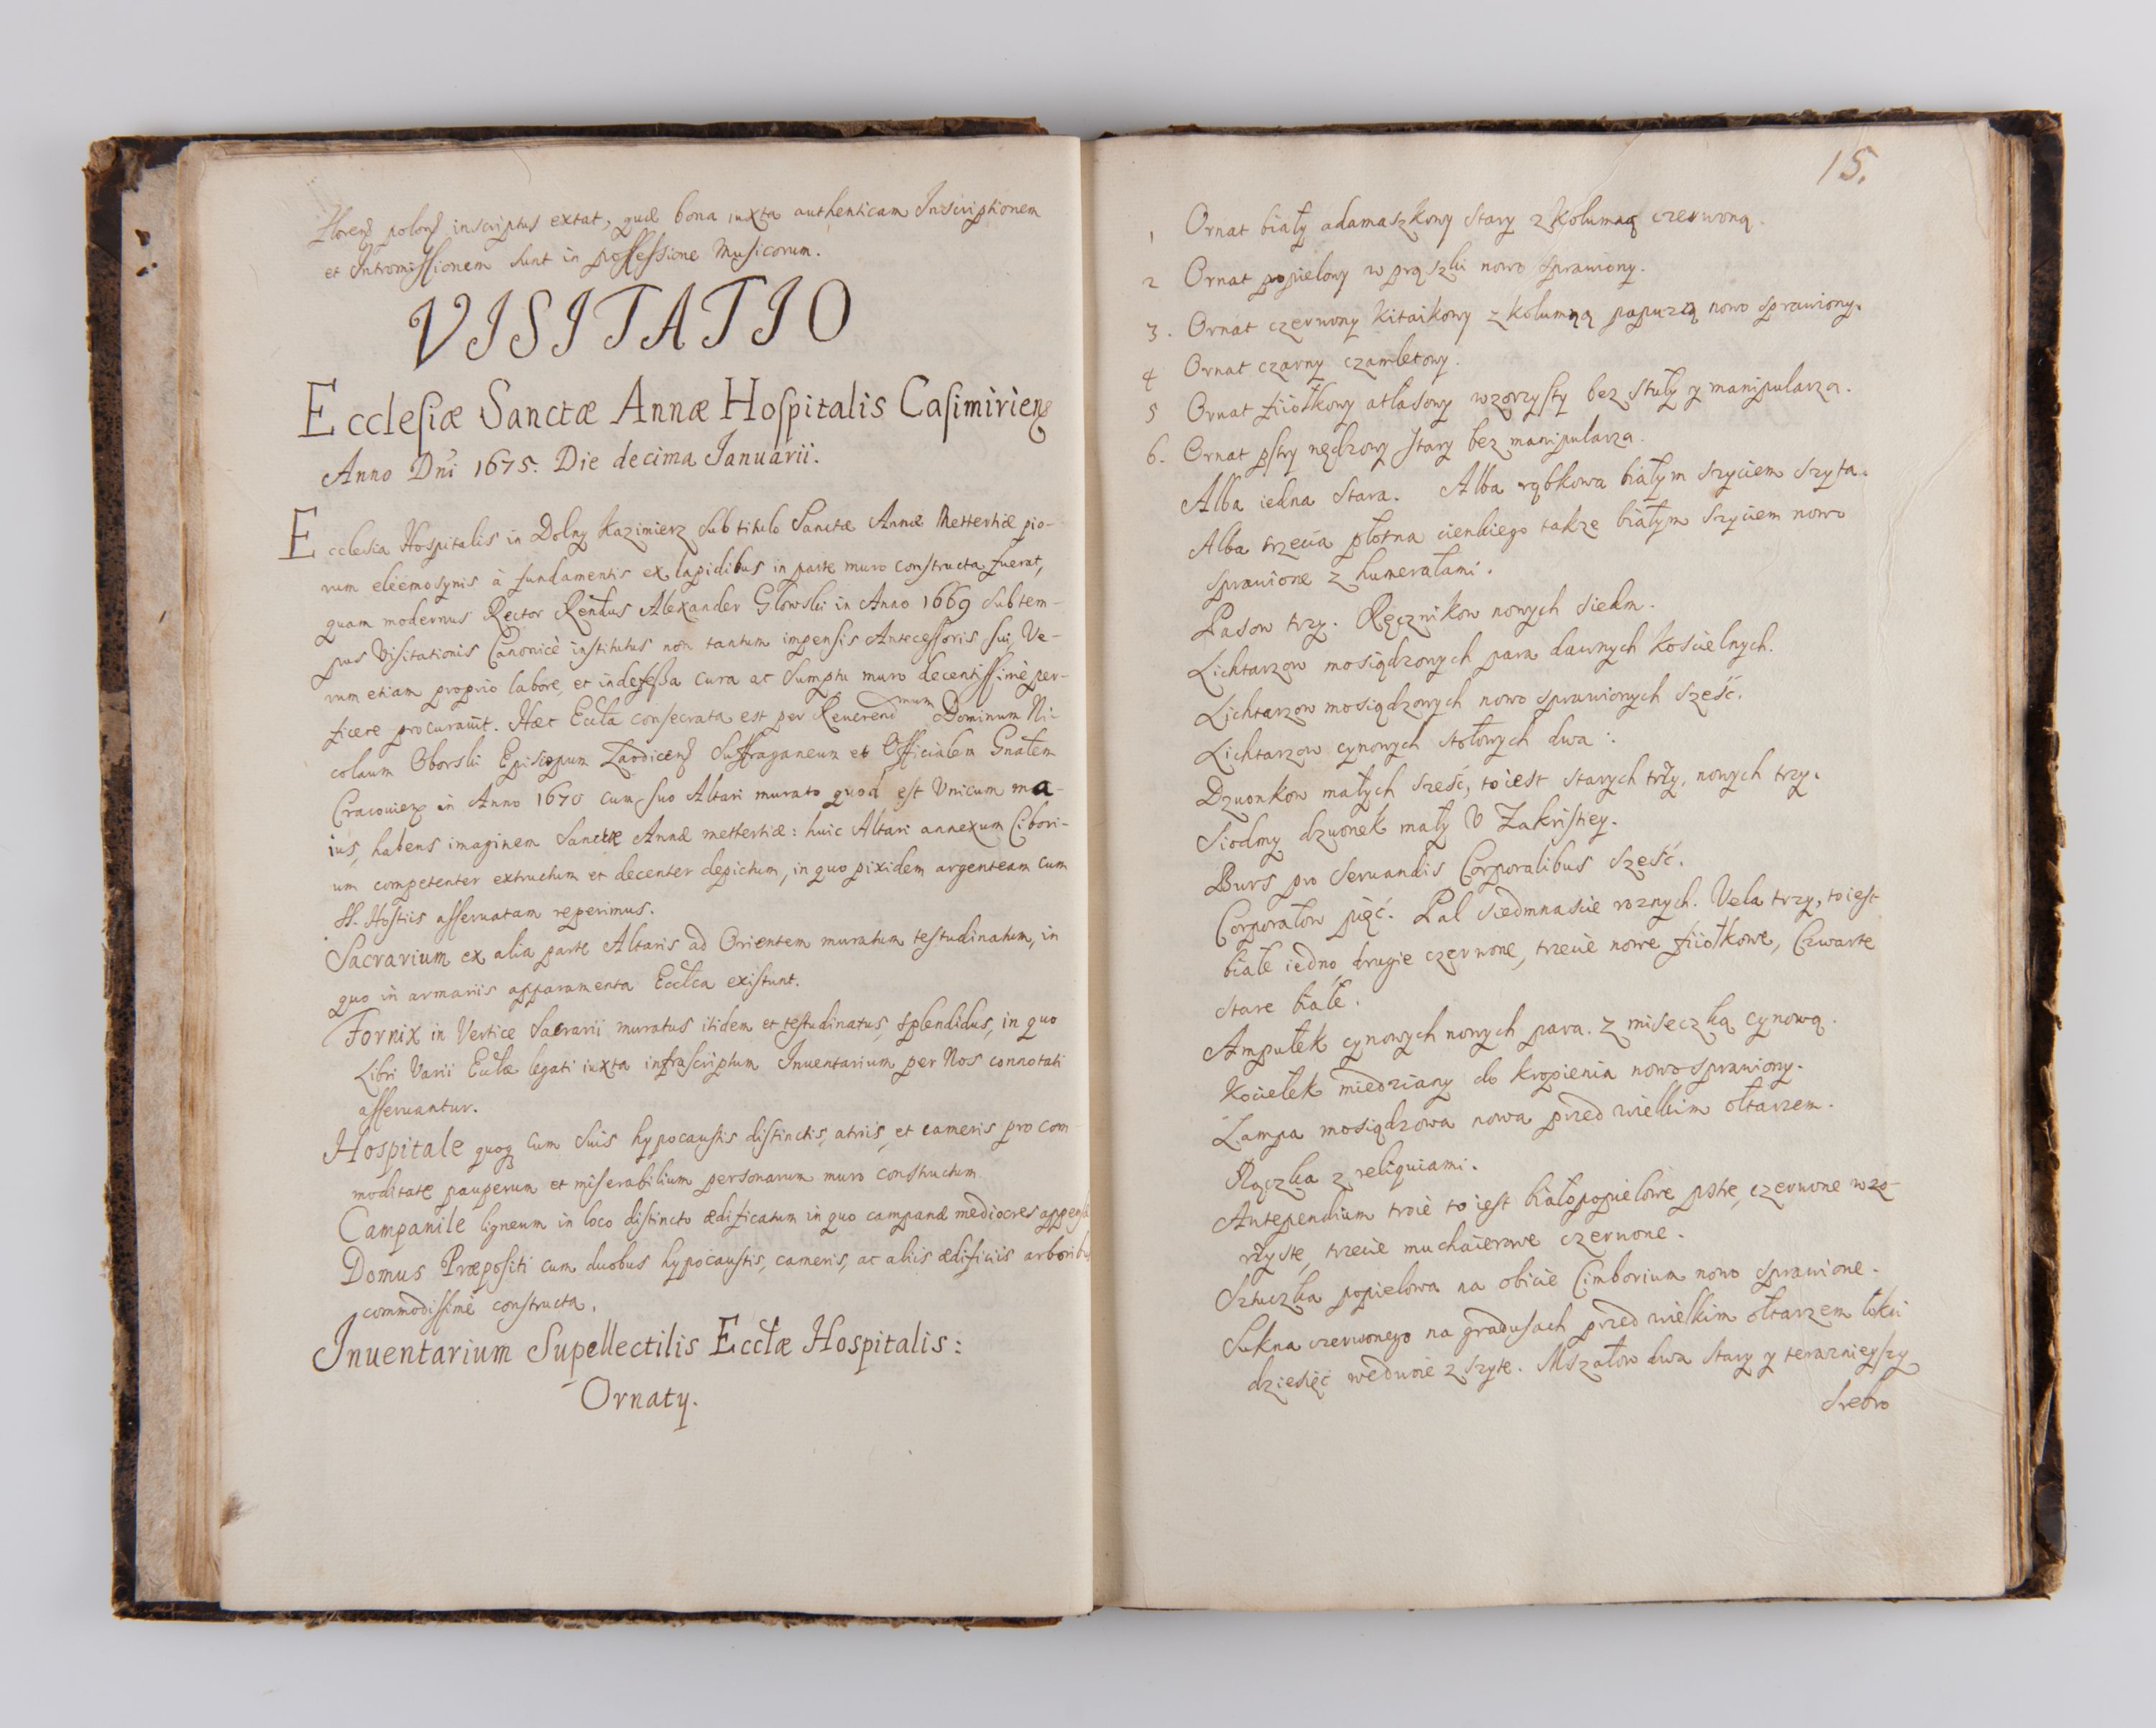 Floren polon inscriptus extat; quæ bona iuxta authenticam Inscriptionem
et Intromissionem sunt in possessione Musicorum.
VISITATIO
Ecclesiæ Sanctæ Annæ Hospitalis Casimirien
Anno Dni 1675. Die decima Ianuarii.
Ecclesia Hospitalis in Dolny Kazimierz sub titulo Sanctæ Annæ Mettertiæ pio-
rum eleemosynis à fundamentis ex lapidibus in parte muro constructa fuerat,
quam modernus Rector Rendus Alexander Glowski in Anno 1669 sub tem-
pus Visitationis Canonicè institutus non tantum impensis Antecessoris sui, Ve-
rum etiam proprio labore, et indefessa cura ac sumptu muro decentissimè per-
ficere procurauit. Hæc Eccla consecrata est per Reuerendmum Dominum Ni-
colaum Oborski Episcopum Laodicen Suffraganeum et Officialem Gnalem
Cracouien in Anno 1670 cum suo Altari murato quod est Vnicum ma-
ius, habens imaginem Sanctæ Annæ mettertiæ: huic Altari annexum Cibori-
um competenter extructum et decenter depictum, in quo pixidem argenteam cum
SS. Hostiis asseruatam reperimus.
Sacrarium ex alia parte Altaris ad Orientem muratum testudinatum, in
quo in armariis apparamenta Ecclca existunt.
Fornix in Vertice Sacrarii muratus itidem et testudinatus, splendidus, in quo
Libri Varii Ecclæ legati iuxta infrascriptum Inuentarium per Nos connotati
asseruantur.
Hospitale quoq cum suis hypocaustis distinctis, atriis, et cameris pro com
moditate pauperum et miserabilium personarum muro constructum.
Campanile ligneum in loco distincto ædificatum in quo campanæ mediocres appensæ
Domus Præpositi cum duobus hypocaustis, cameris, ac aliis ædificiis arboribus
commodissimè constructa.
Inuentarium Supellectilis Ecclæ Hospitalis:
Ornaty.
15.
1 Ornat biały adamaszkowy stary z kolumną czerwoną.
2 Ornat popielowy w prąszki nowo sprawiony.
3. Ornat czerwony kitaikowy z kolumną papuzą nowo sprawiony.
4 Ornat czarny czamletowy.
5 Ornat fiiołkowy atlasowy wzorzysty bez stuły y manipularza.
6. Ornat pstry nędzowy stary bez manipularza.
Alba iedna stara. Alba rąbkowa białym szyciem szyta.
Alba trzecia płotna cienkiego takze białym szyciem nowo
sprawione z humerałami.
Pasow trzy. Ręcznikow nowych siedm.
Lichtarzow mosiądzowych para dawnych koscielnych.
Lichtarzow mosiądzowych nowo sprawionych sześć.
Lichtarzow cynowych stołowych dwa:
Dzwonkow małych sześć, to iest starych trzy, nowych trzy.
Siodmy dzwonek mały V Zakristiey.
Burs pro seruandis Corporalibus sześć.
Corporałow pięć. Pal siedmnascie roznych. Vela trzy, to iest
białe iedno, drugie czerwone, trzecie nowe fiiołkowe, Czwarte
stare białe.
Ampułek cynowych nowych para. z miseczką cynową.
Kociełek miedziany do kropienia nowo sprawiony.
Lampa mosiądzowa nowa przed wielkim ołtarzem.
Rączka z reliquiami.
Antependium troie to iest białopopielowe pstre, czerwone wzo-
rzyste, trzecie muchaierowe czerwone.
Sztuczka popielowa na obicie Cimborium nowo sprawione.
Sukna czerwonego na gradusach przed wielkim ołtarzem łokci
dziesięć wedwoie zszyte. Mszałow dwa stary y terazniejszy
Srebro